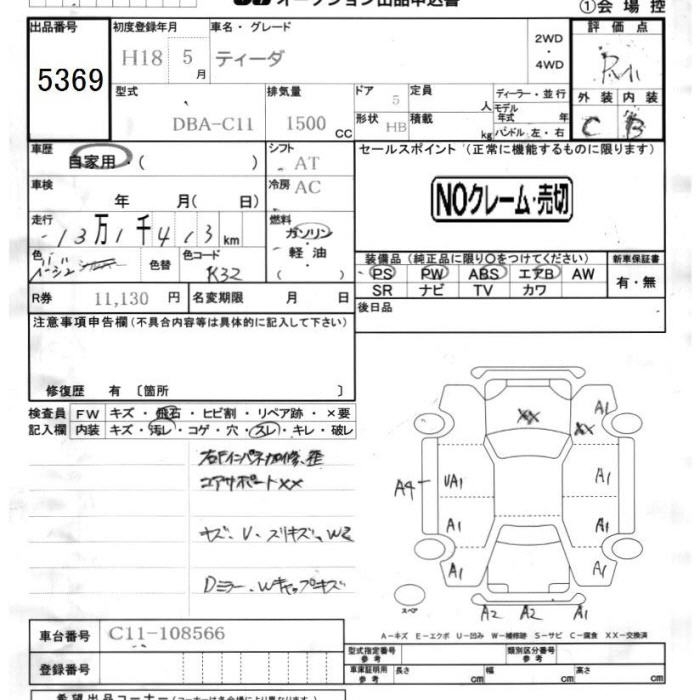 オークション出品申込書
①会場控
出品番号 初度登録年月 車名・グレード 評価点
5369 H18 5月 ティーダ 2WD・4WD
型式 排気量 ドア 定員 人 ディーラー・並行 外装 内装
DBA-C11 1500 CC 5 形状 HB 積載 kg モデル年式 年 ハンドル 左・右 C B
車歴 自家用・( ) シフト AT セールスポイント (正常に機能するものに限ります)
車検 年 月( 日) 冷房 AC
NOクレーム・売切
走行 13万1千413km 燃料 ガソリン・軽油・( )
色 ベージュ 色替 色コード K32
装備品 (純正品に限り○をつけてください) 新車保証書
PS PW ABS エアB AW 有・無
SR ナビ TV カワ
R券 11,130円 名変期限 月 日
後日品
注意事項申告欄(不具合内容等は具体的に記入して下さい)
修復歴 有 〔箇所 〕
検査員 FW キズ・飛石・ヒビ割・リペア跡・×要
記入欄 内装 キズ・汚レ・コゲ・穴・スレ・キレ・破レ
コアサポートXX
キズ、U、スリキズ、W2
Dミラー、Wキャップキズ
XX A1
XX
A4 UA1 A1
A1 A1
A1 A1
スペア A2 A2 A1
A-キズ E-エクボ U-凹み W-補修跡 S-サビ C-腐食 XX-交換済
車台番号 C11-108566
型式指定番号 参考 類別区分番号 参考
登録番号 車庫証明用 参考 長さ cm 幅 cm 高さ cm
希望出品コーナー